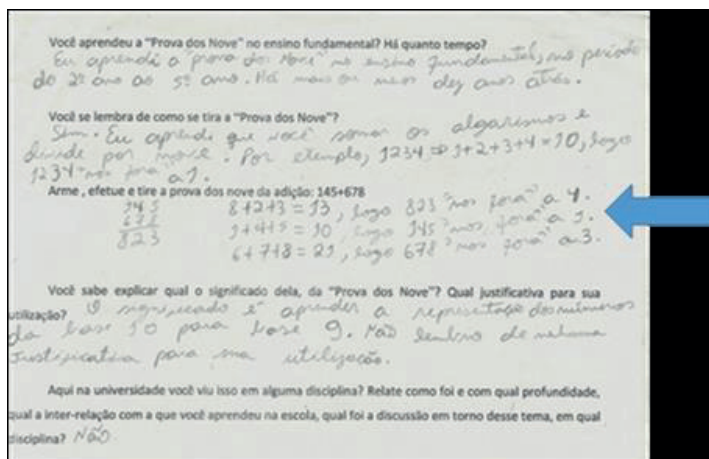 Você aprendeu a "Prova dos Nove" no ensino fundamental? Há quanto tempo?
Eu aprendi a "prova dos nove" no ensino fundamental, no período
do 2º ano ao 5º ano. Há mais ou menos dez anos atrás.
Você se lembra de como se tira a "Prova dos Nove"?
Sim. Eu aprendi que você somar os algarismos e
divide por nove. Por exemplo, 1234 ⇒ 1+2+3+4 = 10, logo
1234 "nos fora" a 1.
Arme , efetue e tire a prova dos nove da adição: 145+678
145 8+2+3 = 13, logo 823 "nos fora" a 4.
678 1+4+5 = 10, logo 145 "nos fora" a 1.
823 6+7+8 = 21, logo 678 "nos fora" a 3.
Você sabe explicar qual o significado dela, da "Prova dos Nove"? Qual justificativa para sua
utilização? O significado é aprender a representação dos números
da base 10 para base 9. Não lembro de nenhuma
justificativa para sua utilização.
Aqui na universidade você viu isso em alguma disciplina? Relate como foi e com qual profundidade,
qual a inter-relação com a que você aprendeu na escola, qual foi a discussão em torno desse tema, em qual
disciplina? Não